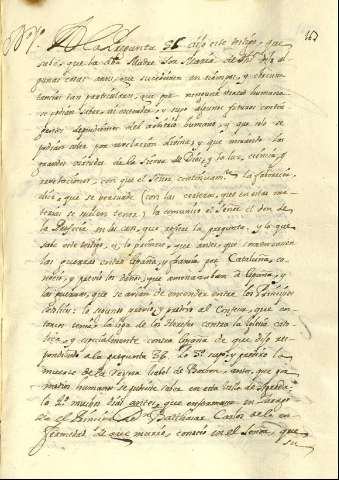 163
A la Pregunta 36 dijo este testigo, que
sabe, que la dha Madre Sor Maria de Jhs dijo al
gunas cosas antes que sucediesen en tiempos, y circuns
tancias tan particulares, que por ninguna traza humana
se podian saber, ni entender: y supo algunos futuros contin
gentes dependientes del arbitrio humano, y que solo se
podian saber por revelacion divina; y que mirando las
grandes virtudes de la Sierva de Dios, y la luz, ciencia, y
revelaciones, con que el Señor continuamte la favorecia,
dice, que se persuade (con las certezas, que en estas ma
terias se suelen tener) la comunico el Señor el don de
la Profecia en los casos, que refiere la pregunta, y lo que
sabe este testigo, es, lo primero, que antes, que comenzasen
las guerras entre España, y Francia por Cataluña, co
nocio, y previo los daños, que amenazaban a España, y
las guerras, que se avian de encender entre los Principes
Catolicos: lo segundo previo, y predixo al Confesor, que en
tonces tenia la liga de los Herejes contra la Iglesia cato
lica, y especialmente contra España de que dijo res
pondiendo a la pregunta 36. Lo 3º supo, y predixo la
muerte de la Reyna Isabel de Borbon, antes, que por
medios humanos se pudiese saber en esta Villa de Agreda
lo 4º muchos dias antes, que enfermase en Zarago
za el Principe Dn Balthasar Carlos de la en
fermedad de que murio, conocio en el Señor, que
su